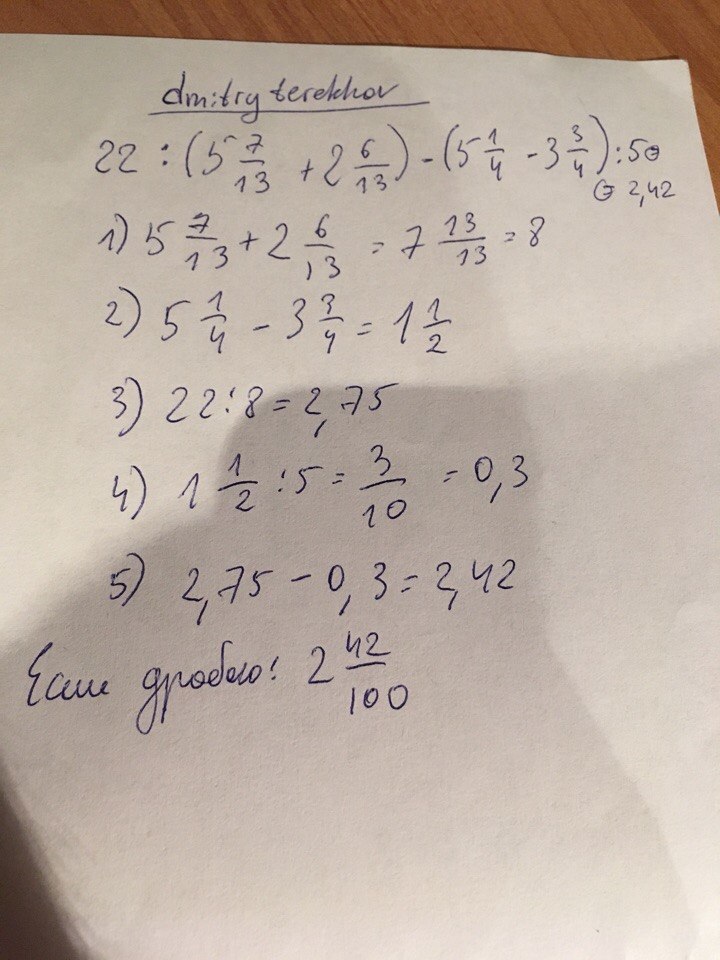 dmitry terekhov
22 : (5 7/13 + 2 6/13) - (5 1/4 - 3 3/4) : 5 =
= 2,42
1) 5 7/13 + 2 6/13 = 7 13/13 = 8
2) 5 1/4 - 3 3/4 = 1 1/2
3) 22 : 8 = 2,75
4) 1 1/2 : 5 = 3/10 = 0,3
5) 2,75 - 0,3 = 2,42
Если дробью: 2 42/100